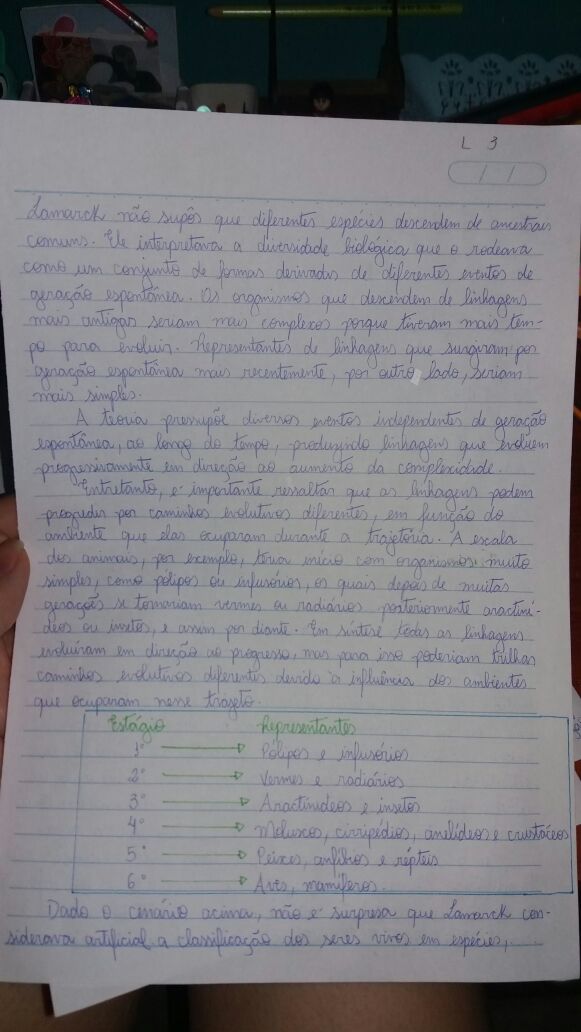 L 3
/ /
Lamarck não supôs que diferentes espécies descendem de ancestrais
comuns. Ele interpretava a diversidade biológica que o rodeava
como um conjunto de formas derivadas de diferentes eventos de
geração espontânea. Os organismos que descendem de linhagens
mais antigas seriam mais complexos porque tiveram mais tem-
po para evoluir. Representantes de linhagens que surgiram por
geração espontânea mais recentemente, por outro lado, seriam
mais simples.
A teoria pressupõe diversos eventos independentes de geração
espontânea, ao longo do tempo, produzindo linhagens que evoluem
progressivamente em direção ao aumento da complexidade.
Entretanto, é importante ressaltar que as linhagens podem
progredir por caminhos evolutivos diferentes, em função do
ambiente que elas ocuparam durante a trajetória. A escala
dos animais, por exemplo, teria início com organismos muito
simples, como pólipos ou infusórios, os quais depois de muitas
gerações se tornariam vermes ou radiários posteriormente aractiní-
deos ou insetos, e assim por diante. Em síntese todas as linhagens
evoluíram em direção ao progresso, mas para isso poderiam trilhar
caminhos evolutivos diferentes devido à influência dos ambientes
que ocuparam nesse trajeto.
Estágio Representantes
1° Pólipos e infusórios
2° Vermes e radiários
3° Aractinídeos e insetos
4° Moluscos, cirripédios, anelídeos e crustáceos
5° Peixes, anfíbios e répteis
6° Aves, mamíferos.
Dado o cenário acima, não é surpresa que Lamarck con-
siderava artificial a classificação dos seres vivos em espécies,...